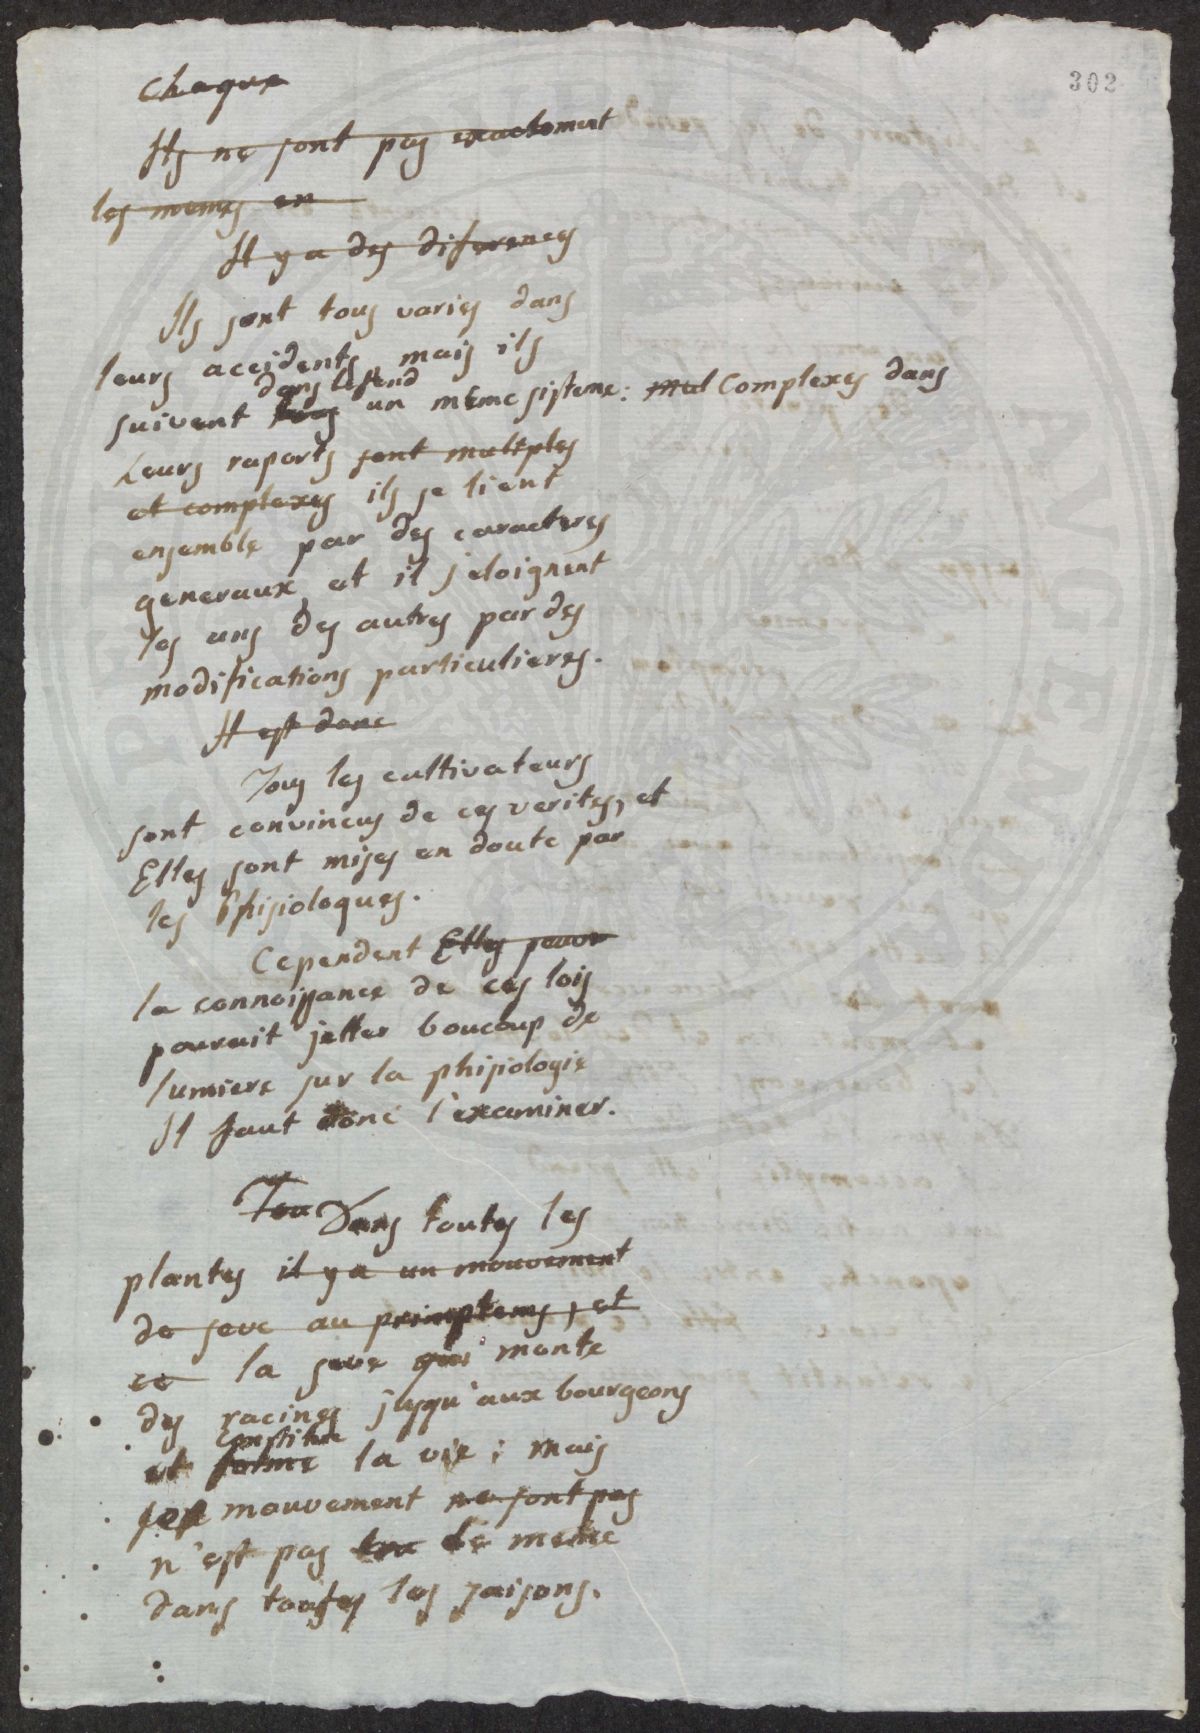 302
Chaque
Ils ne sont pas exactement
les memes en
Il y a des diferences
Ils sont tous varies dans
leurs accidents mais ils
dans le fend
suivent tous un meme sisteme: mul Complexes dans
Leurs raports sont multples
et complexes ils se lient
ensemble par des caracteres
generaux et il s'eloignent
les uns des autres par des
modifications particulieres.
Il est donc
Tous les cultivateurs
sont convincus de ces verites, et
Elles sont mises en doute par
les Phisiologues.
Cependent Elles peuve
la connoissance de ces lois
pouruit jetter boucoup de
lumiere sur la phisiologie
Il faut donc l'examiner.
Tou Dans toutes les
plantes il y a un mouvement
de seve au primptems, et
ce la seve qui monte
des racines jusqu'aux bourgeons
constitue
et forme la vie; mais
son mouvement ne sont pas
n'est pas le meme
dans toutes les saisons.